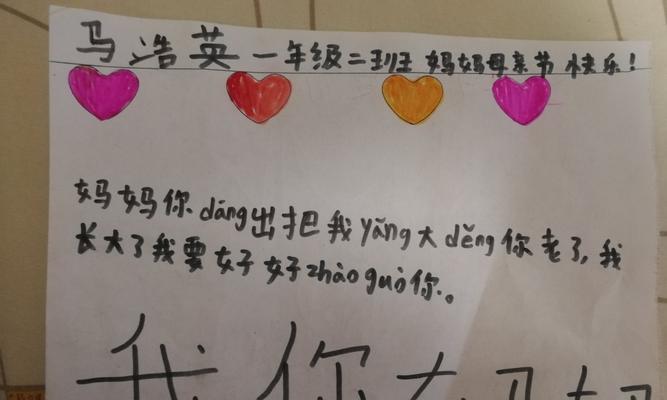 马浩英 一年级二班 妈妈母亲节快乐!
妈妈你dāng出把我yǎng大děng你老了,我
长大了我要好好zhào guò你。
我你